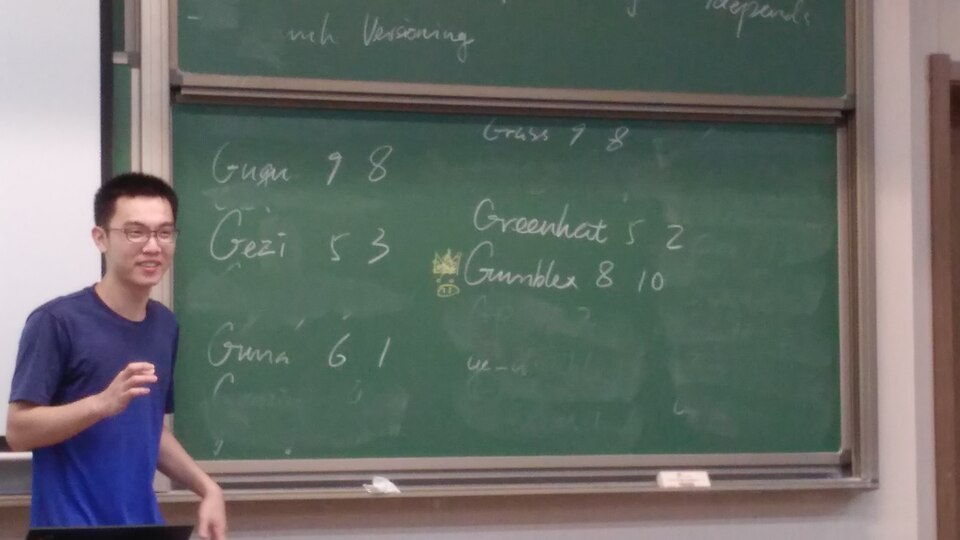 depends
Versioning
Grass 9 8
Gugu 9 8
Gezi 5 3
Greenhat 5 2
Gumblex 8 10
Guna 6 1